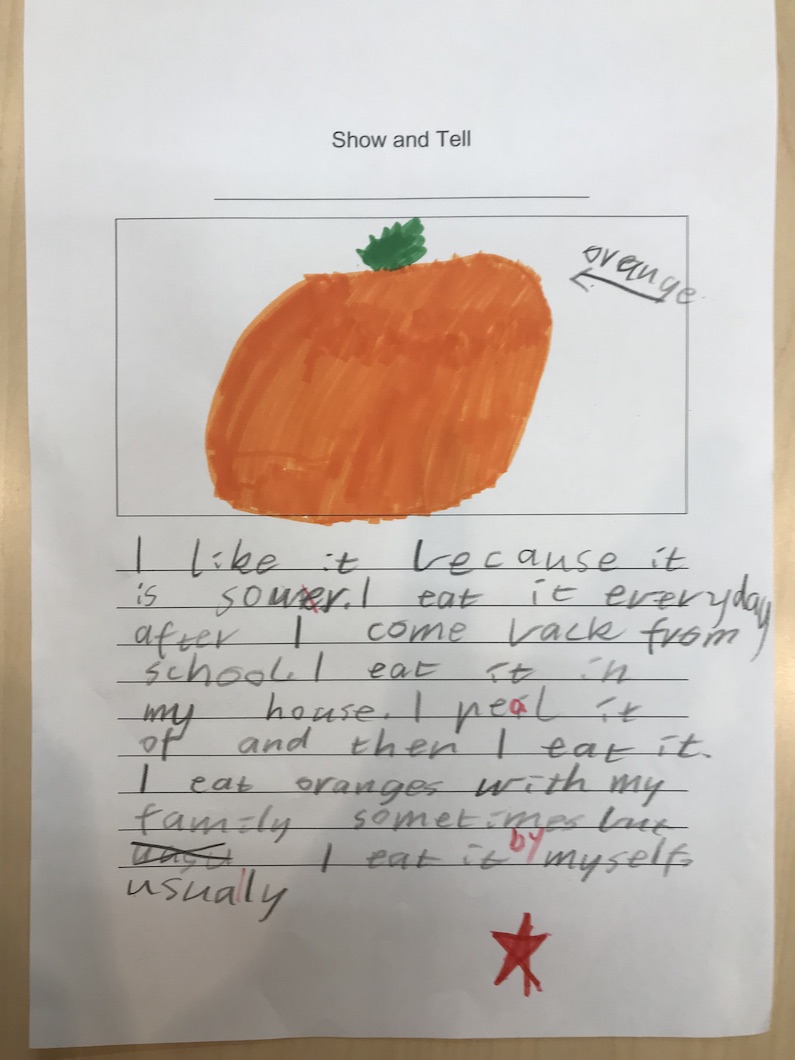 Show and Tell
orange
I like it because it
is sour. I eat it everyday
after I come back from
school. I eat it in
my house. I peal it
of and then I eat it.
I eat oranges with my
family sometimes but
I eat it by myself
usually